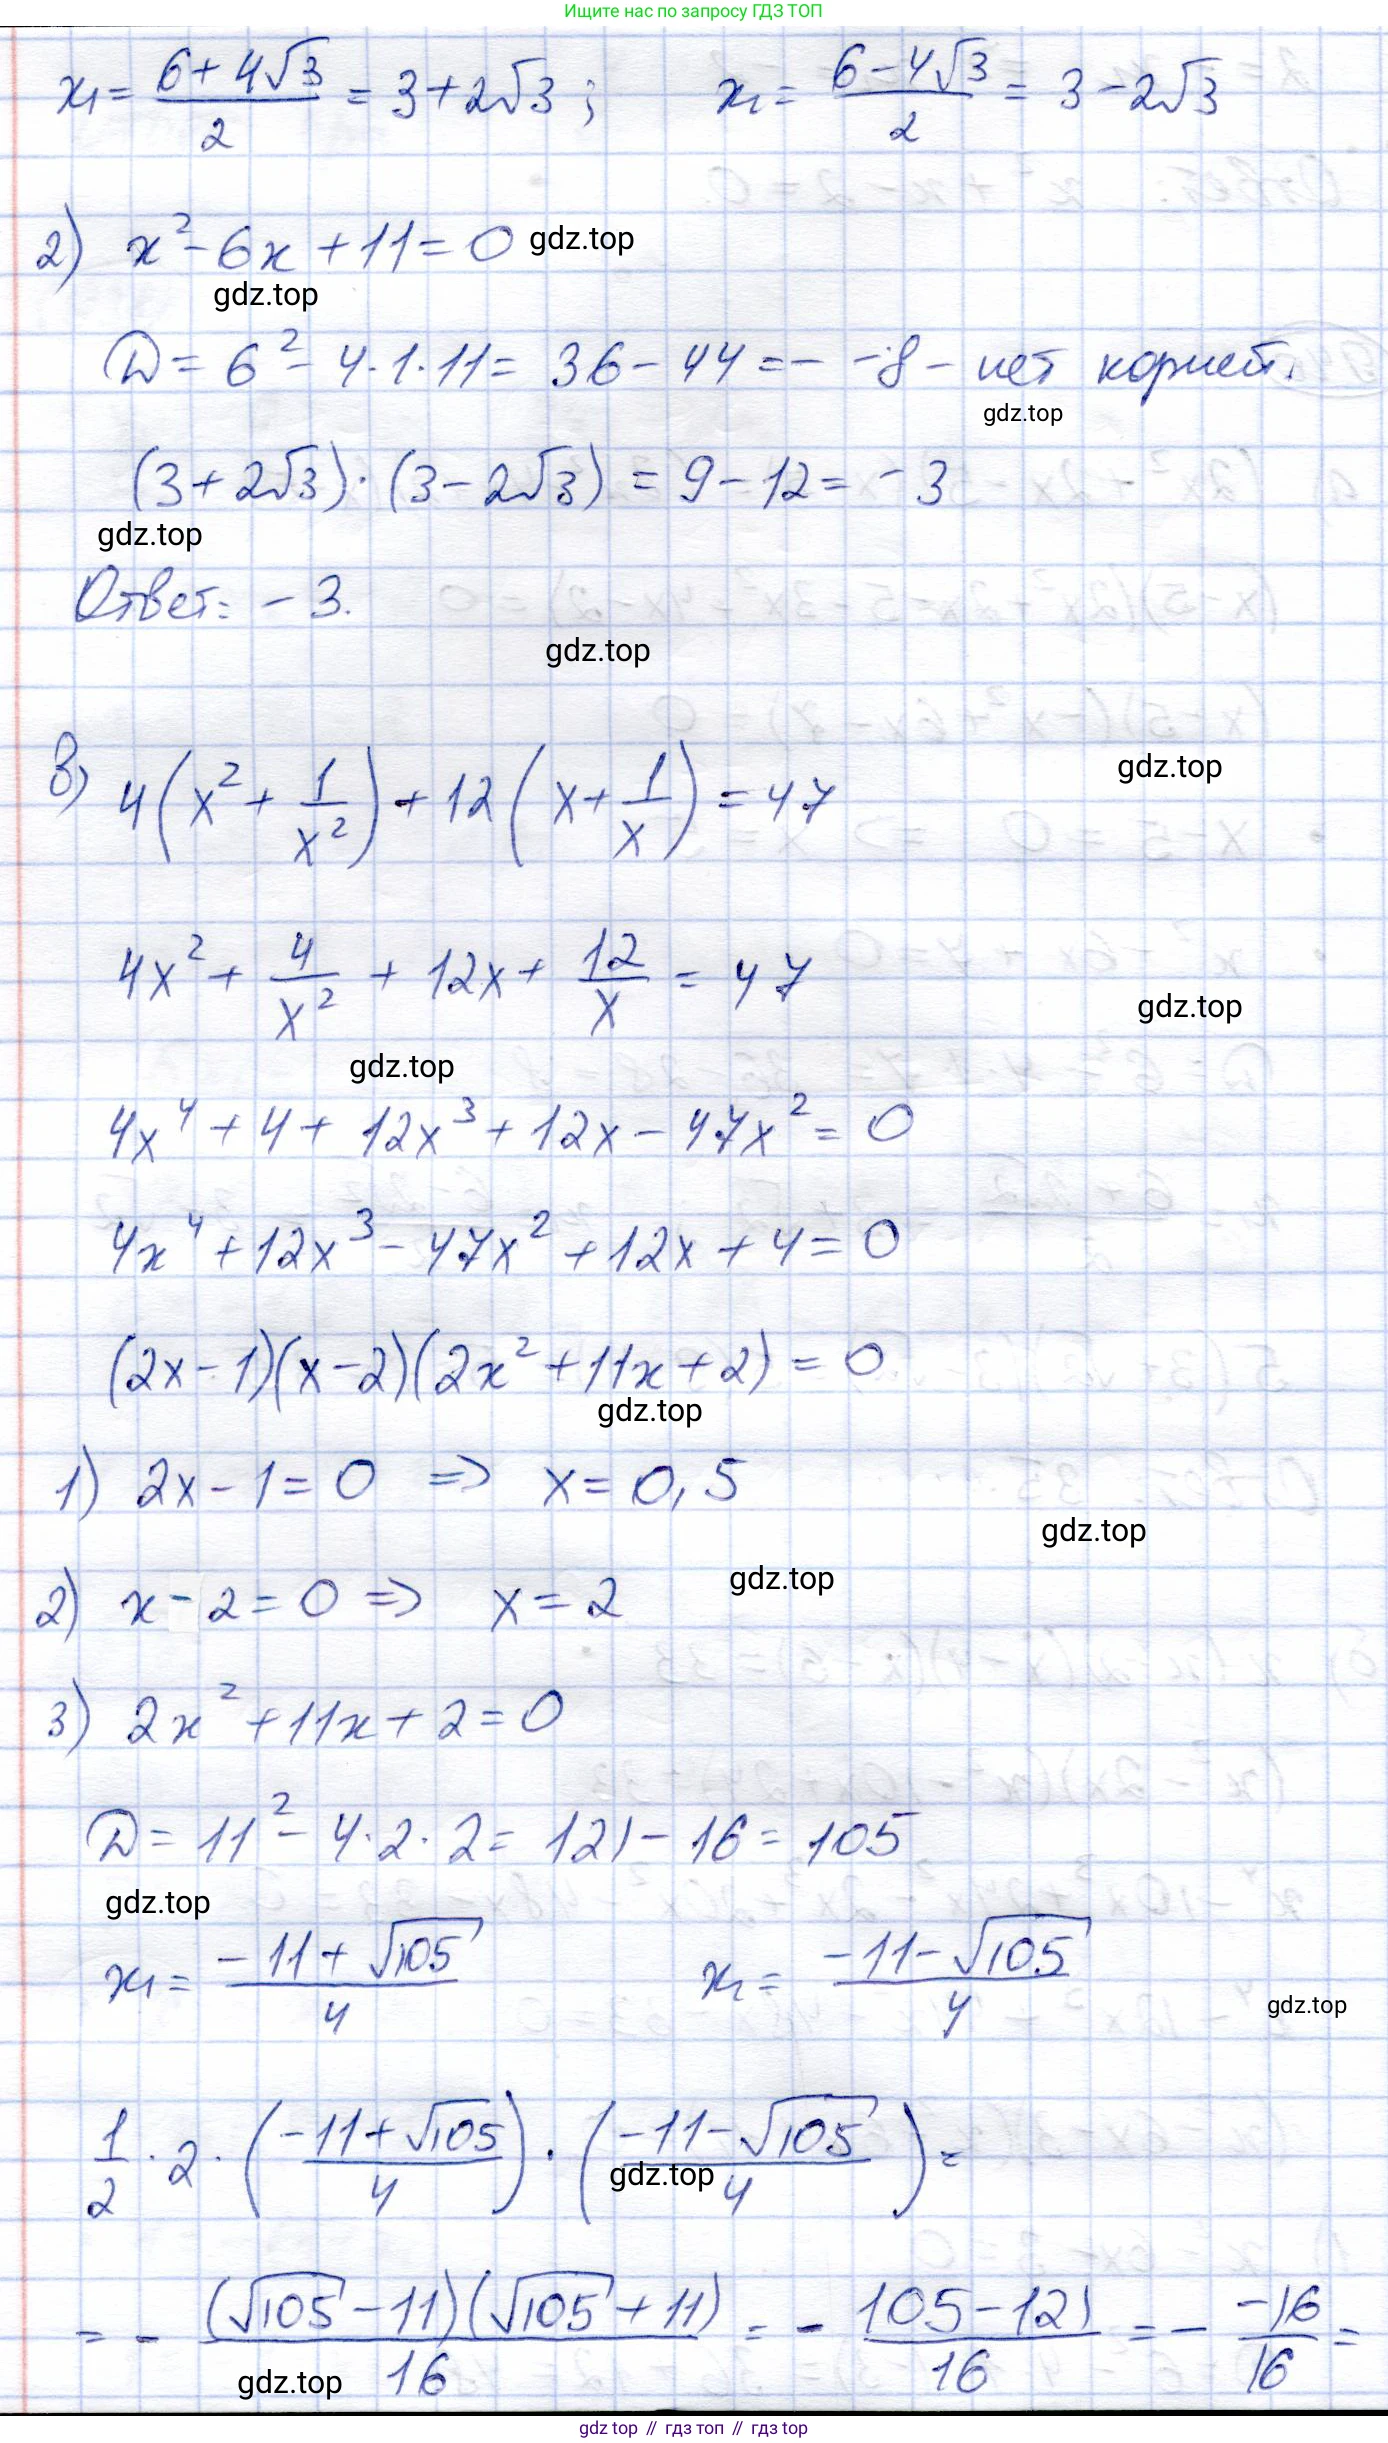 Ищите нас по запросу ГДЗ ТОП
x₁ = (6 + 4√3)/2 = 3 + 2√3 ; x₂ = (6 − 4√3)/2 = 3 − 2√3
2) x² − 6x + 11 = 0 gdz.top
gdz.top
D = 6² − 4·1·11 = 36 − 44 = − −8 − нет корней.
gdz.top
(3 + 2√3)·(3 − 2√3) = 9 − 12 = −3
gdz.top
Ответ: −3.
gdz.top
в) 4(x² + 1/x²) + 12(x + 1/x) = 47
gdz.top
4x² + 4/x² + 12x + 12/x = 47
gdz.top
gdz.top
4x⁴ + 4 + 12x³ + 12x − 47x² = 0
4x⁴ + 12x³ − 47x² + 12x + 4 = 0
(2x − 1)(x − 2)(2x² + 11x + 2) = 0
gdz.top
1) 2x − 1 = 0 => x = 0,5
gdz.top
2) x − 2 = 0 => x = 2
gdz.top
3) 2x² + 11x + 2 = 0
D = 11² − 4·2·2 = 121 − 16 = 105
gdz.top
x₁ = (−11 + √105)/4 x₂ = (−11 − √105)/4
gdz.top
1/2 · 2 · ((−11 + √105)/4) · ((−11 − √105)/4) =
gdz.top
= − (√105 − 11)(√105 + 11)/16 = − (105 − 121)/16 = − −16/16 =
gdz.top
gdz top // гдз топ // gdz top